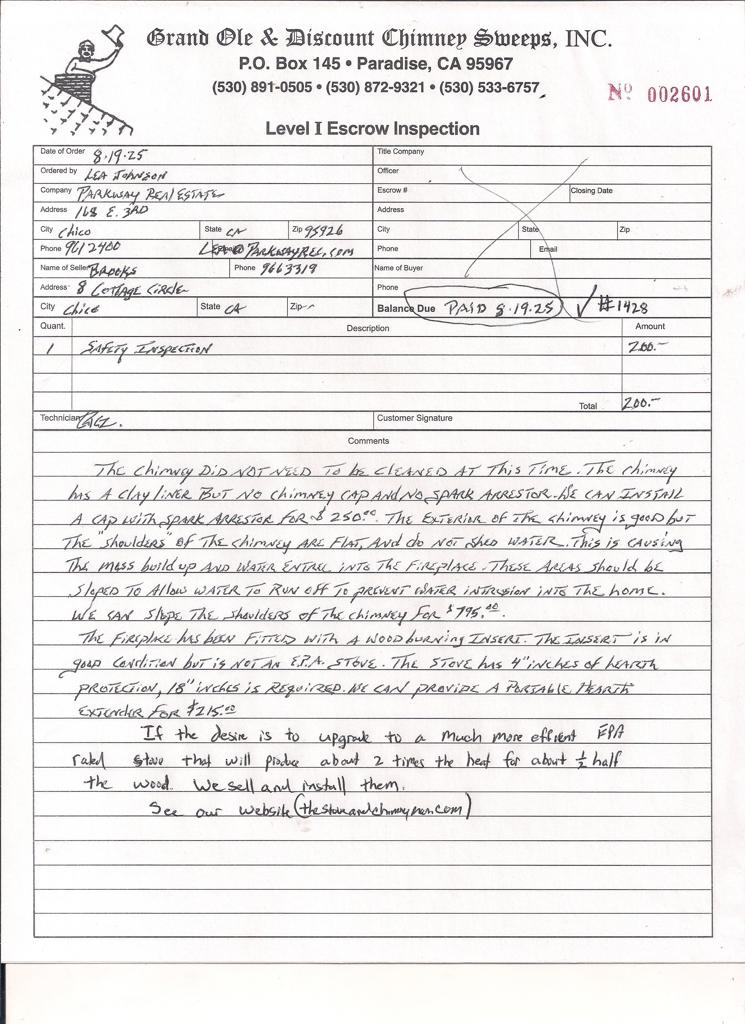 Grand Ole & Discount Chimney Sweeps, INC.
P.O. Box 145 • Paradise, CA 95967
(530) 891-0505 • (530) 872-9321 • (530) 533-6757
Nº 002601
Level I Escrow Inspection
Date of Order 8.19.25 Title Company
Ordered by LEA JOHNSON Officer
Company PARKWAY REAL ESTATE Escrow # Closing Date
Address 168 E. 3RD Address
City Chico State CA Zip 95926 City State Zip
Phone 961 2400 LEA@PARKWAYREC.COM Phone Email
Name of Seller BROOKS Phone 966 3319 Name of Buyer
Address 8 COTTAGE CIRCLE Phone
City Chico State CA Zip Balance Due PAID 8.19.25 ✓ #1428
Quant. Description Amount
1 SAFETY INSPECTION 200.-
Total 200.-
Technician Customer Signature
Comments
THE CHIMNEY DID NOT NEED TO BE CLEANED AT THIS TIME. THE CHIMNEY
HAS A CLAY LINER BUT NO CHIMNEY CAP AND NO SPARK ARRESTOR. WE CAN INSTALL
A CAP WITH SPARK ARRESTOR FOR $250.00. THE EXTERIOR OF THE CHIMNEY IS GOOD BUT
THE "SHOULDERS" OF THE CHIMNEY ARE FLAT, AND DO NOT SHED WATER. THIS IS CAUSING
THE MASS BUILD UP AND WATER ENTREE INTO THE FIREPLACE. THESE AREAS SHOULD BE
SLOPED TO ALLOW WATER TO RUN OFF TO PREVENT WATER INTRUSION INTO THE HOME.
WE CAN SLOPE THE SHOULDERS OF THE CHIMNEY FOR $795.00.
THE FIREPLACE HAS BEEN FITTED WITH A WOOD BURNING INSERT. THE INSERT IS IN
GOOD CONDITION BUT IS NOT AN E.P.A. STOVE. THE STOVE HAS 4" INCHES OF HEARTH
PROTECTION, 18" INCHES IS REQUIRED. WE CAN PROVIDE A PORTABLE HEARTH
EXTENDER FOR $215.00
If the desire is to upgrade to a much more efficient EPA
rated stove that will produce about 2 times the heat for about ½ half
the wood. We sell and install them.
See our website (thestoveandchimneyman.com)